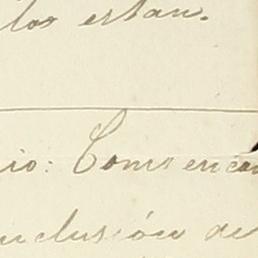 los estan.
io: Comienca
nclusión de